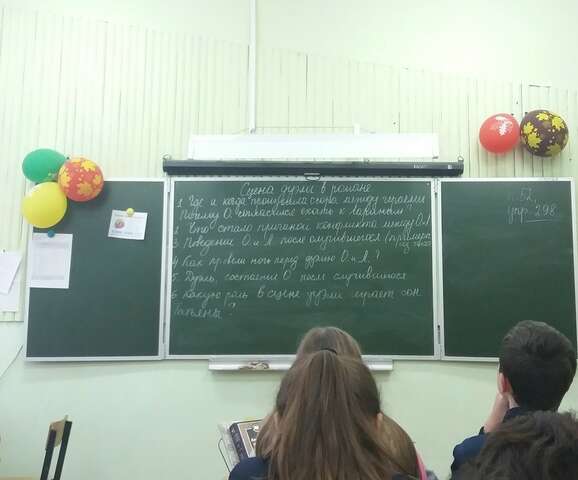 Сцена дуэли в романе
1. Где и когда произошла ссора между героями
Почему О. согласился ехать к Лариным
2. Что стало причиной конфликта между О и Л
3. Поведение О. и Л. после случившегося (примеры
из текста
4. Как провели ночь перед дуэлью О. и Л.?
5. Дуэль, состояние О. после случившегося
6. Какую роль в сцене дуэли играет сон
Татьяны?
п. 52
упр. 298